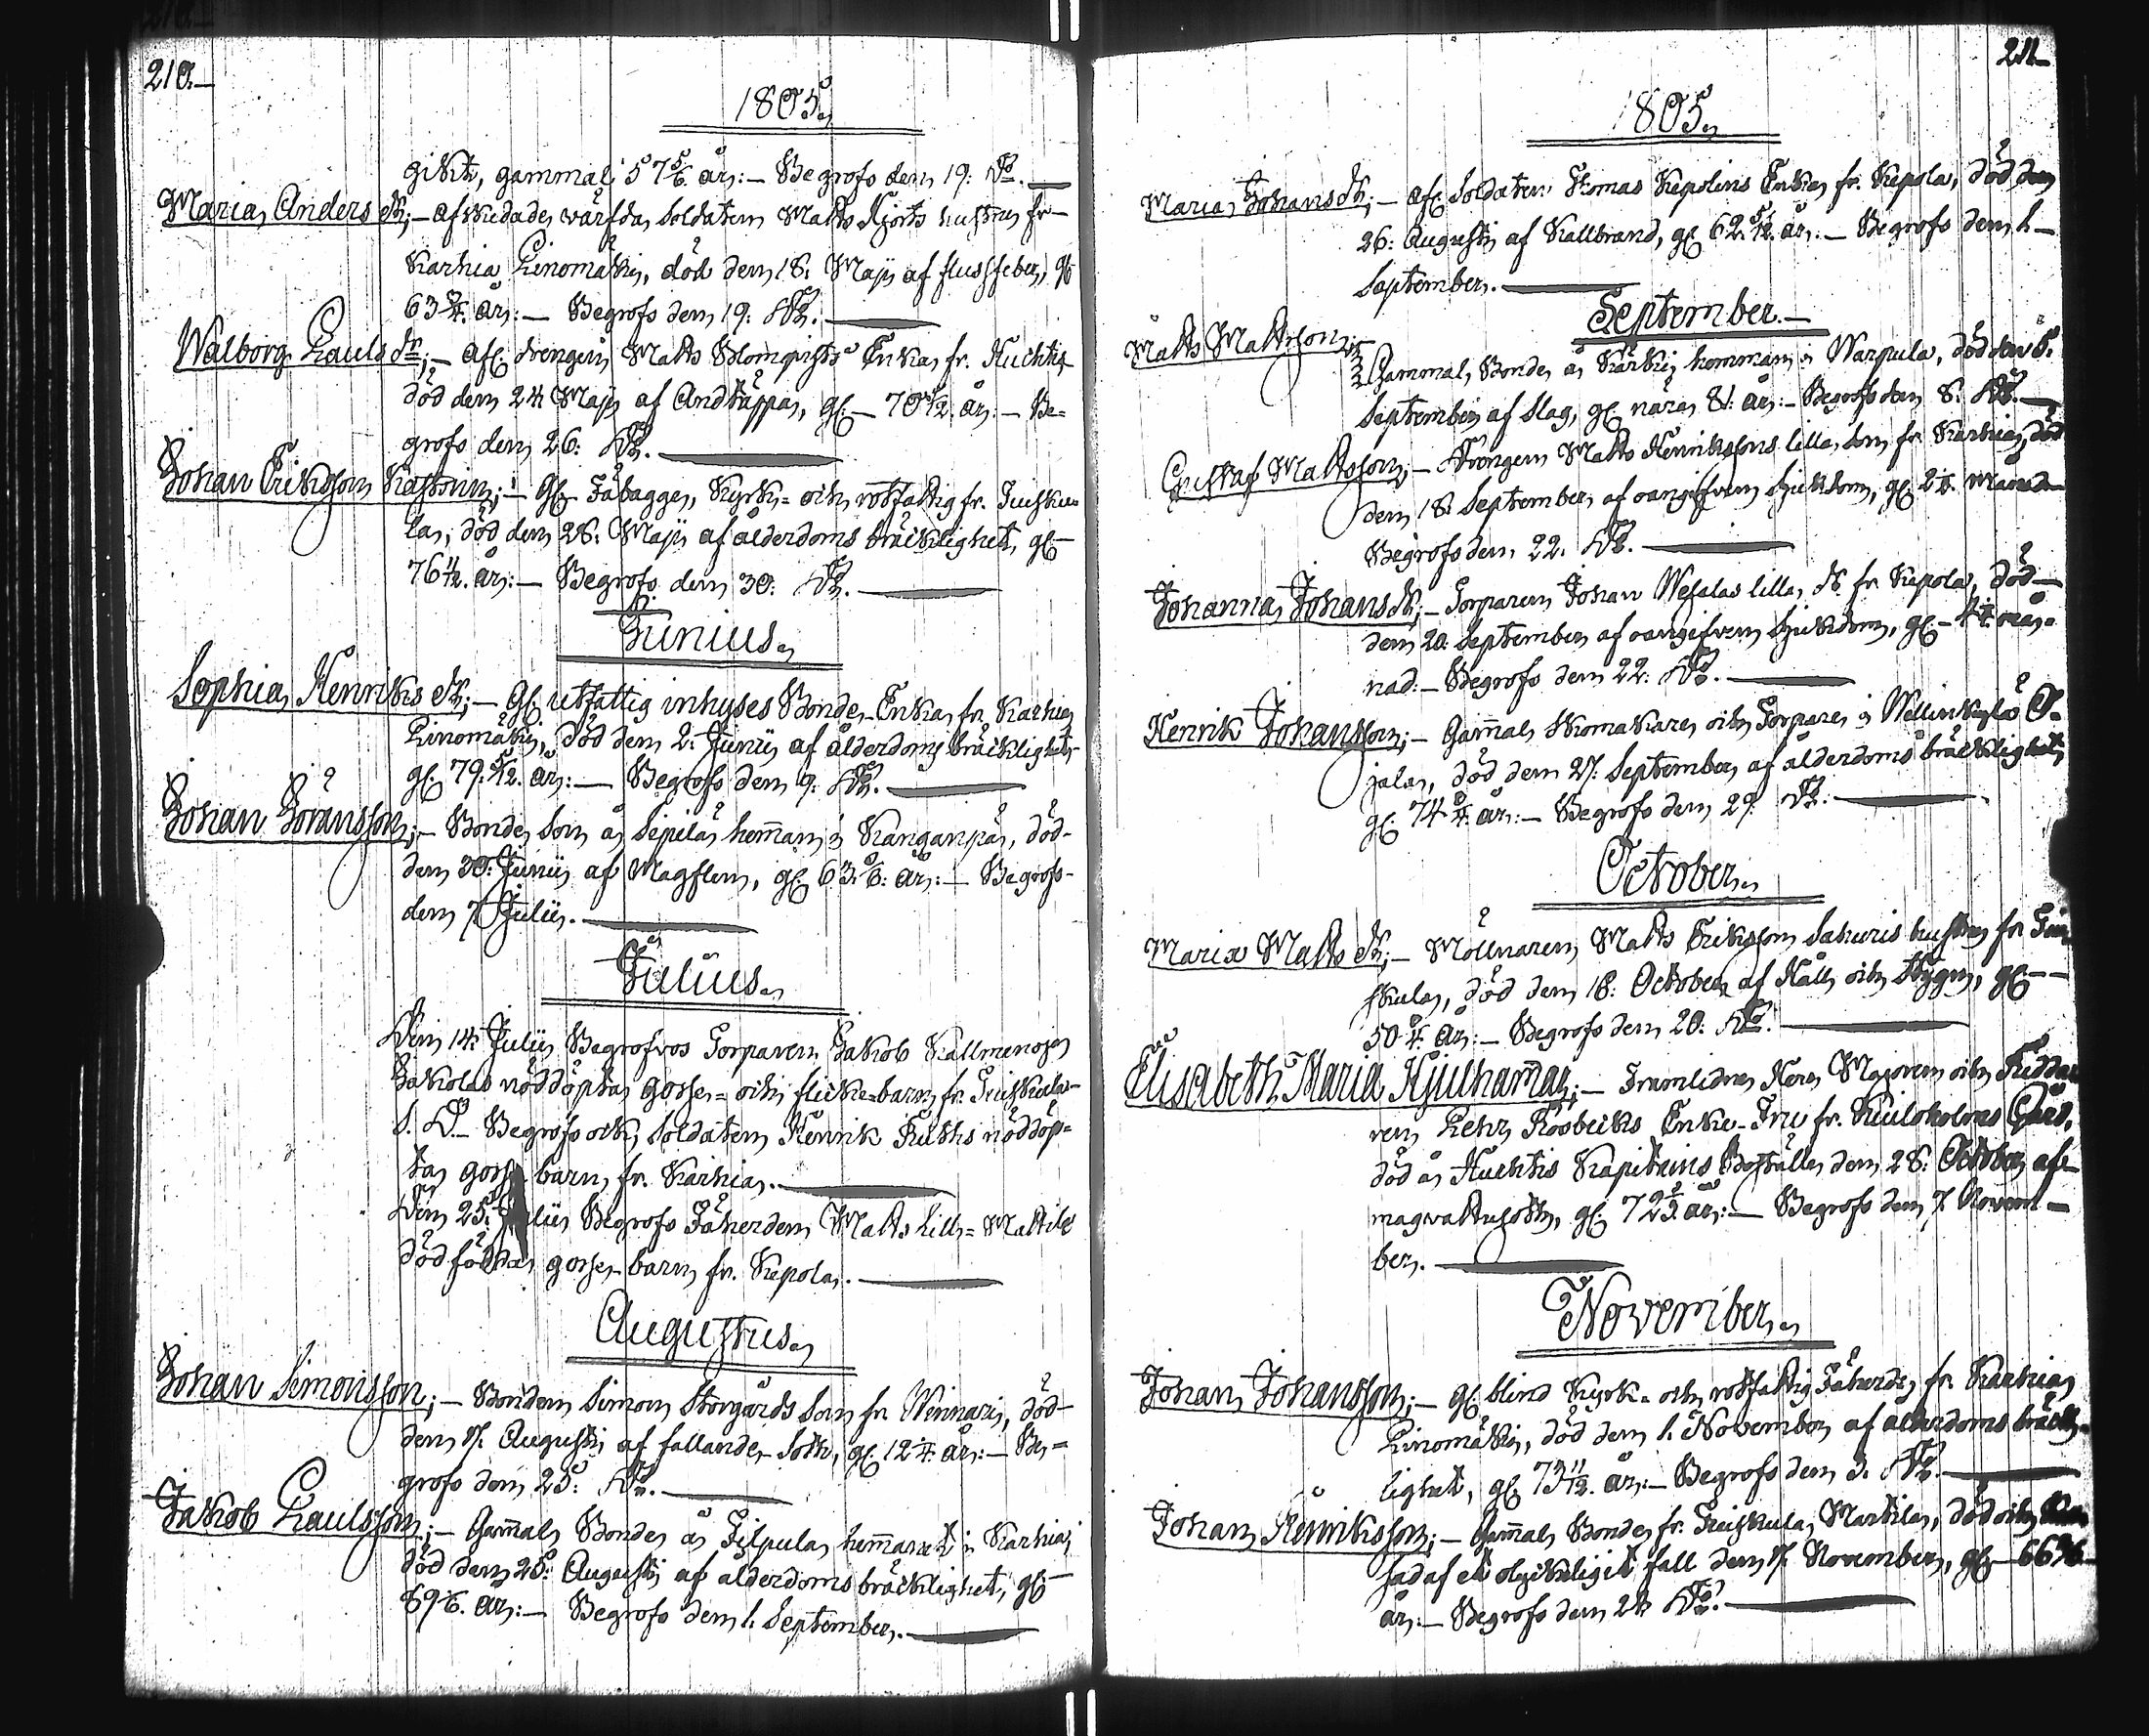 210.
1805.
gikt, gammal 57 5/6 år:— Begrofs den 19: Do.—
Maria Anders dr;— afskedade värfda Soldaten Matts Hjorts hustru fr.
Karhia Linomäki, död den 18. Maji af flussfeber, gl.
63 3/4. år:— Begrofs den 19: Do.—
Walborg Pauls dr;— afl. drengens Matts Blomqvists Enka fr. Huhtis,
död den 24 Maji af Andtäppa, gl:— 70 1/2. år.— Be=
grofs den 26: Do.—
Johan Eriksson Kastorin;— gl. Fäbagge, Kyrk= och rotfattig fr. Juskus
la, död den 28. Maji af ålderdoms bräcklighet, gl.—
76 1/2. år:— Begrofs den 30: Do.—
Junius.
Sophia Henriks dr;— Gl. utfattig inhyses Bonde-Enka fr. Karhia
Linomäki, död den 2. Junii af ålderdoms bräcklighet,
gl. 79. 5/12. år:— Begrofs den 9. Do.—
Johan Göransson;— Bonde Son å Sipilä hemman i Kanganpää, död
den 30: Junii af Magflen, gl. 63. år:— Begrofs
den 7 Julii.—
Julius.
Den 14 Julii Begrofvos Torparen Jakob Kallmenoja
Jakolas nöddöpta gosse= och flicke-barn fr.
S. D.— Begrofs ock Soldaten Henrik Ruths nöddöp=
ta gosse barn, fr. Karhia.—
Den 25: Julii Begrofs Fäherden Matts Lill= Mattila
dödfödda gosse-barn fr. Kepola.—
Augustus.
Johan Simonsson;— Bonden Simon Storgårds Son fr. Winnari, död
den 17. Augusti af fallande-Soth, gl. 12 1/4. år:— Be=
grofs den 25: Do.—
Jakob Paulsson;— Gammal Bonde å Filpula hemmanet i Karhia,
död den 25: Augusti af ålderdoms bräcklighet, gl.—
89 år:— Begrofs den 1. September.—
211.
1805.
Maria Johans dr;— Afl. Soldaten Thomas Kepolins Enka, fr. Kepola, död den
26: Augusti af Kallbrand, gl. 62. 5/12. år:— Begrofs den 1.
September.—
September.—
Matts Mattsson;—
Gammal Bonde å Kärki hemman i Warpula, död den 5.
September af Slag, gl. nära 81. år:— Begrofs den 8. Do.—
Gustaf Mattsson;— Drengen Matts Henrikssons lilla Son fr. Karhia, död
den 18. September af oangifven sjukdom, gl. månad.
Begrofs den 22. Do.—
Johanna Johans dr;— Torparen Johan Wesalas lilla dr. fr. Kepola, död
den 20. September af oangifven sjukdom, gl.— 4 må=
nad.— Begrofs den 22. Do.—
Henrik Johansson;— Gammal Skomakare och Torpare i Wellinkylä O=
jala, död den 27. September af ålderdoms bräcklighet,
gl. 74 år:— Begrofs den 29. Do.—
October.
Maria Matts dr;— Möllnaren Matts Eriksson Sahuris hustru fr.
skula, död den 18. October af Håll och Stygn, gl.—
50 år:— Begrofs den 20: Do.—
Elisabeth Maria Hjulhamar;— Framlidne Herr Majoren och Riddar
ren Pehr Roobecks Enke-Fru fr. Kiuloholms Gård,
död å Huhtis Kapitains Boställe den 28. October af
magvattusoth, gl. 72 2/3. år:— Begrofs den 7. Novem-
ber.—
November.
Johan Johansson;— gl. blind Kyrk= och rotfattig Fäherde fr. Karhia
Linomäki, död den 1. November af ålderdoms bräck-
lighet, gl. 73 11/12. år:— Begrofs den 3. Do.—
Johan Henriksson;— Gammal Bonde fr. Martila, död och
sad af et olyckligit fall den 17. November, gl. 66
år:— Begrofs den 24 Do.—